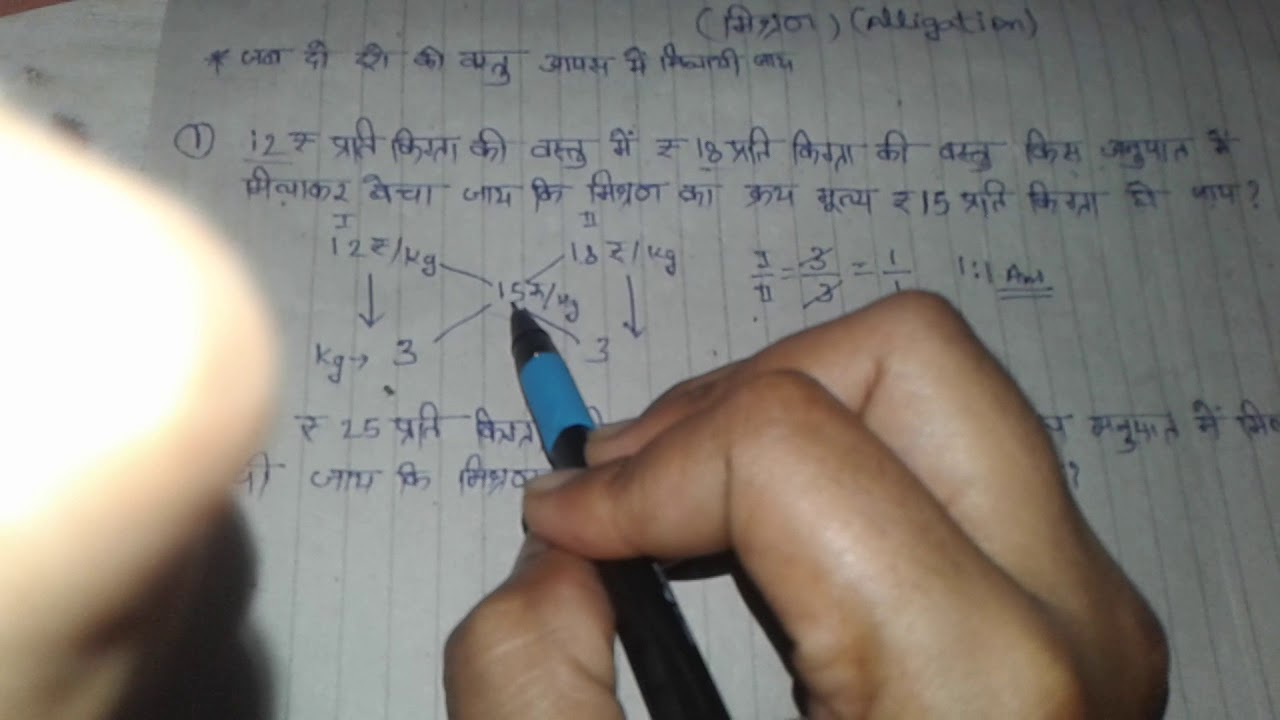 (मिश्रण) (Alligation)
* जब दो की वस्तु आपस में मिलायी जाय
① 12 ₹ प्रति किग्रा की वस्तु में ₹ 18 प्रति किग्रा की वस्तु किस अनुपात में
मिलाकर बेचा जाय कि मिश्रण का क्रय मूल्य ₹ 15 प्रति किग्रा हो जाय ?
I II
12 ₹/kg 18 ₹/kg
15 ₹/kg
I/II = 3/3 = 1/1 1:1 Ans
kg→ 3 3
₹ 25 प्रति अनुपात में
जाय कि ?